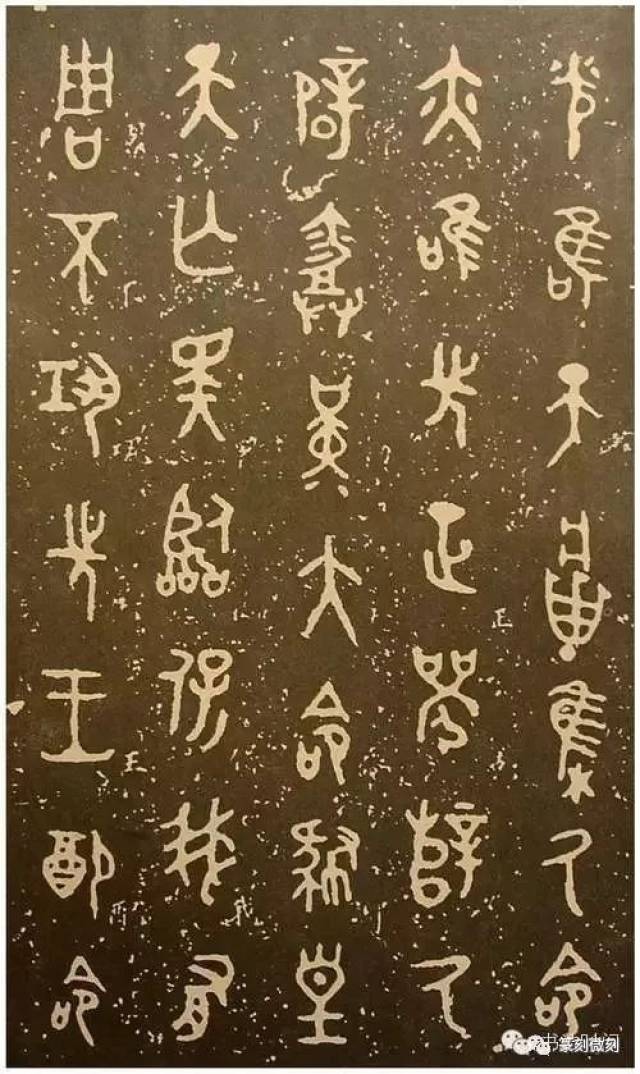 光唯天將集厥命
亦唯先正襄辥厥
辟勞堇大命肆皇
天亡斁臨保我有
周不巩先王配命
篆刻微刻